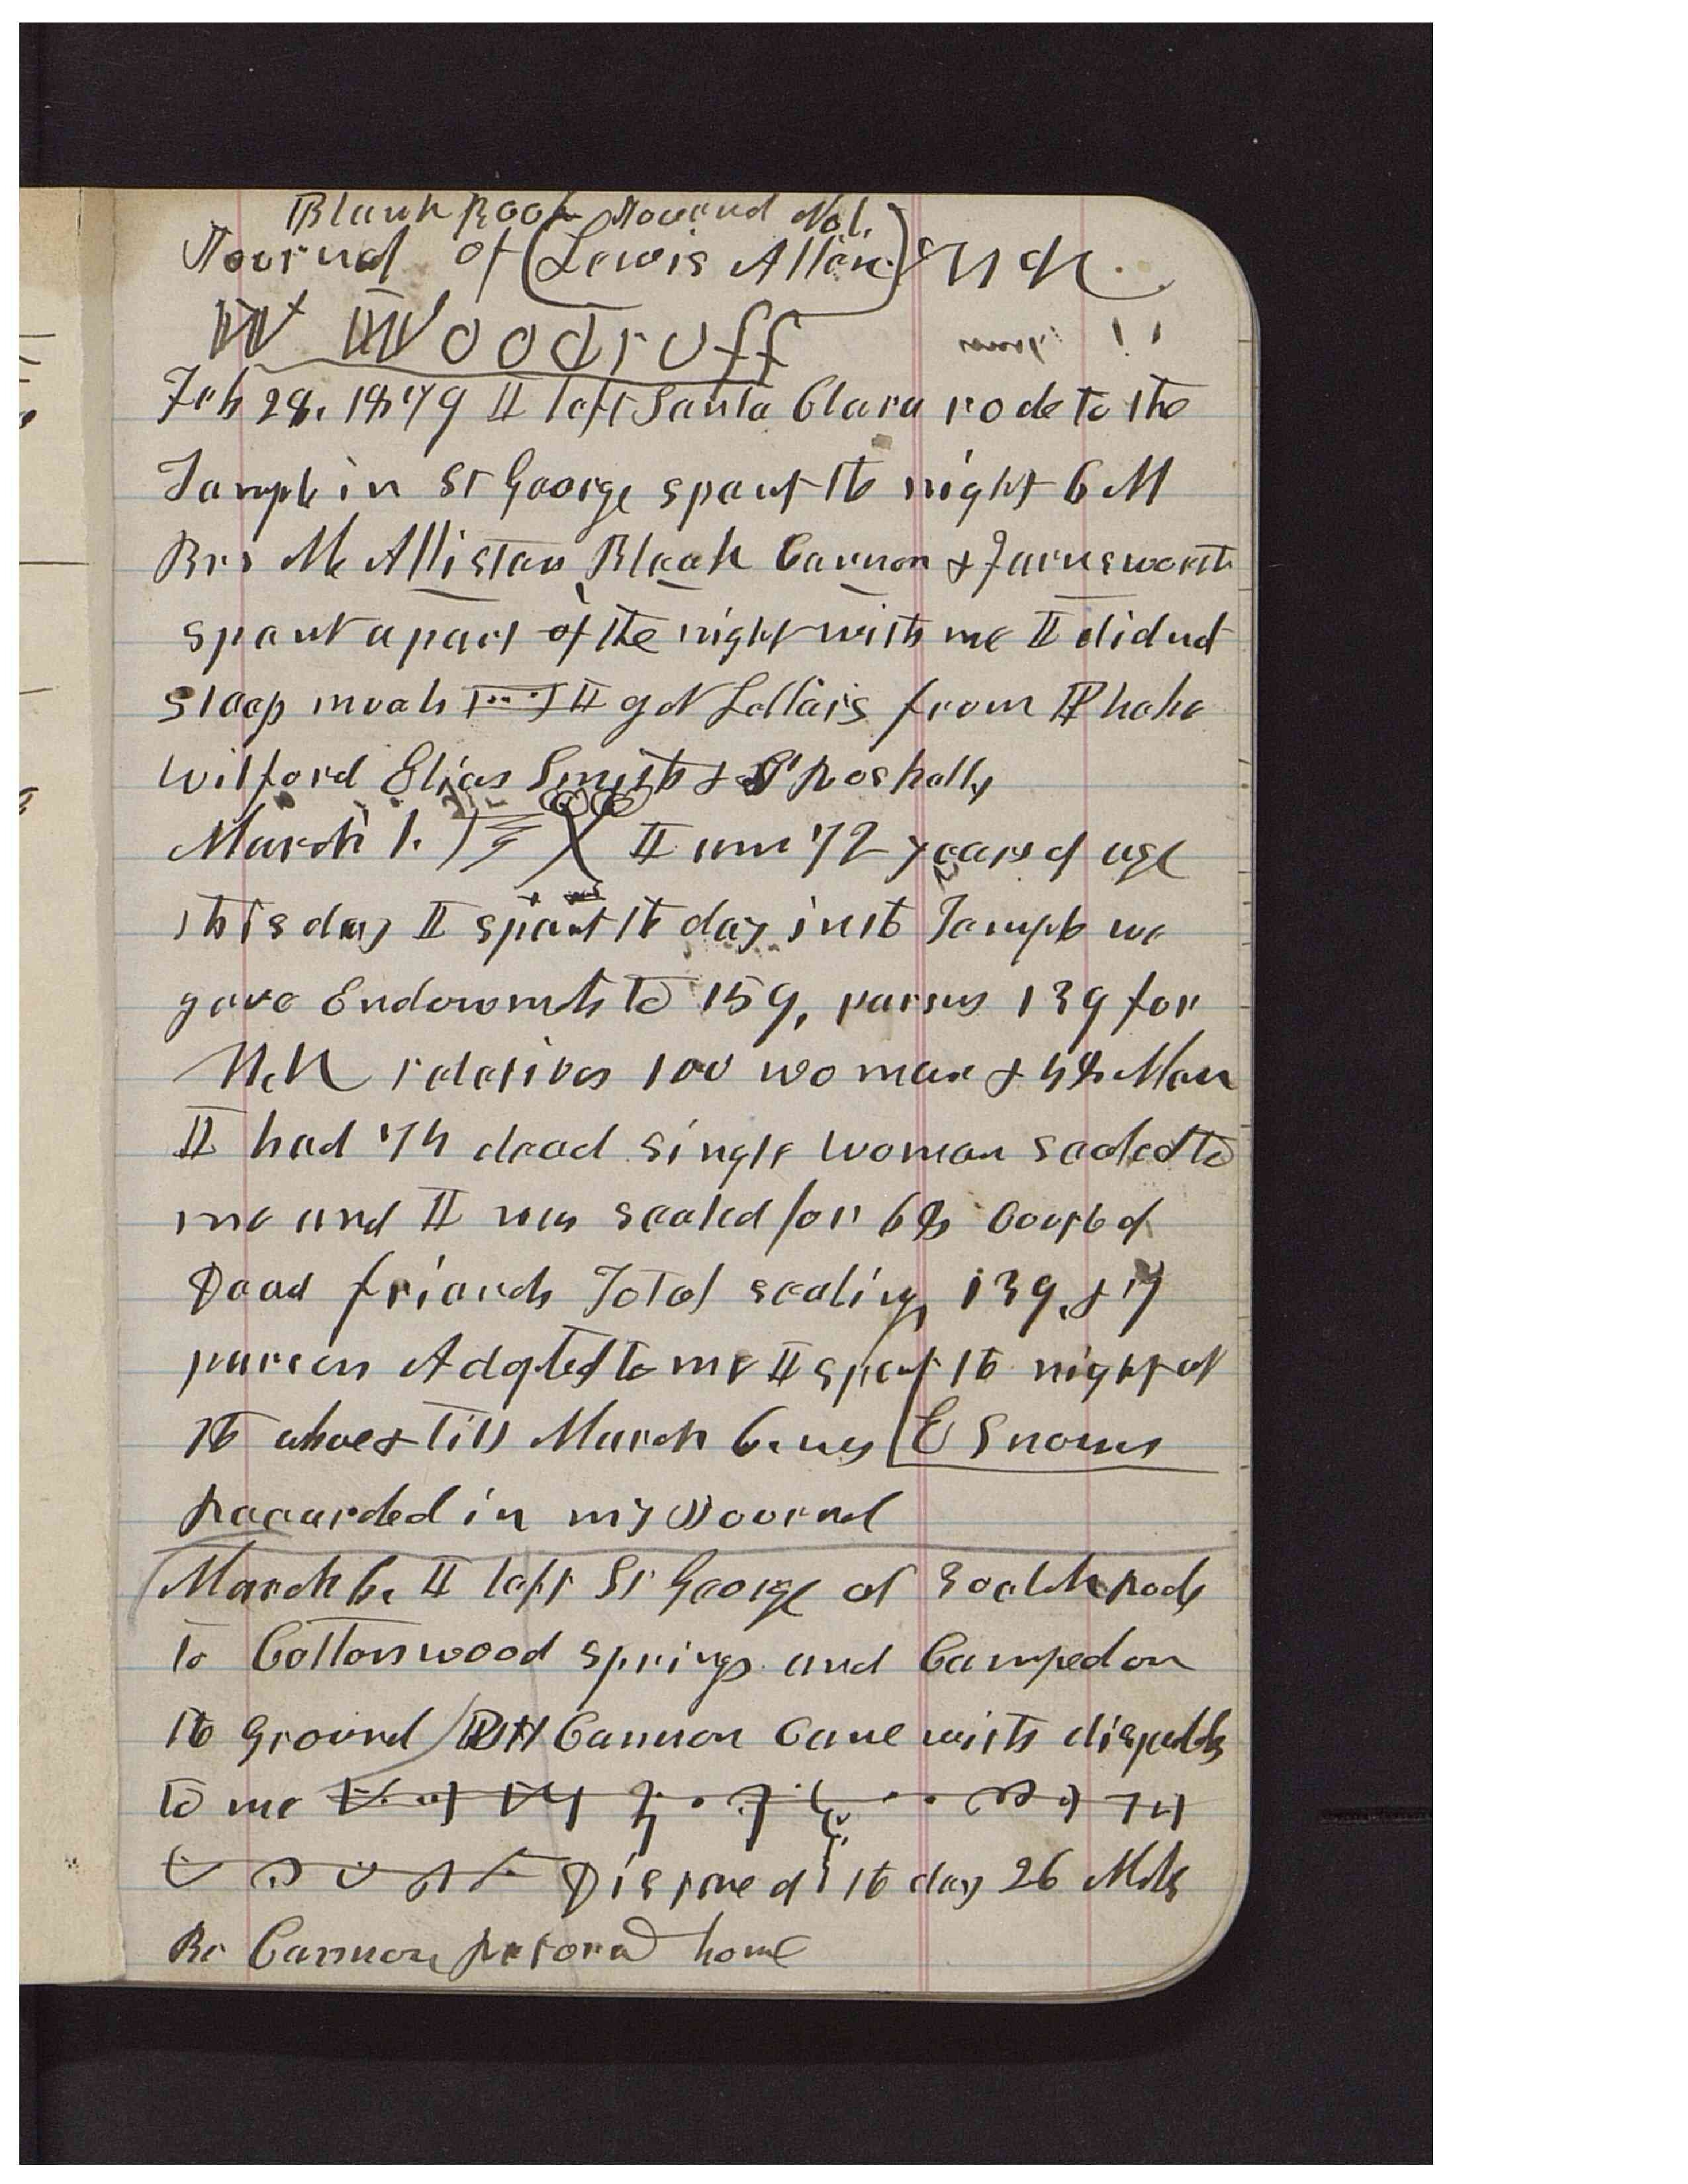 Blank Book Journal No 1.
Journal of (Lewis Allen)
W Woodruff
Feb 28. 1879 I left Santa Clara rode to the
Temple in St George spent the night 6 M
Brs McAllister Bleak Cannon & Farnsworth
spent a part of the night with me I did not
sleep much I got Letters from Phebe
Wilford Elias Smith & Roskelly
March 1. I am 72 years of age
this day I spent the day in the Temple we
gave Endowmts to 159, persons 139 for
relatives 100 women & Men
I had 74 dead single women sealed to
me and I was sealed for 65 Coupls of
Dead friends Total sealings 139, & 17
persons Adopted to me I spent the night at
the above & till March 6. E Snows
Recorded in my Journal
March 6. I left St George at rode
to Cottonwood springs and Camped on
the ground Cannon Came with dispatch
to me
Distance of the day 26 Mils
Br Cannon Returnd home